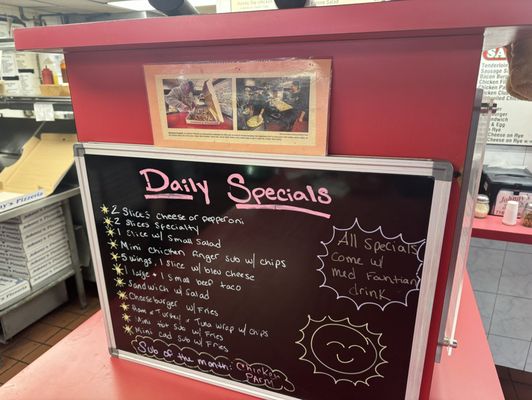 Daily Specials
2 Slices cheese or pepperoni
2 Slices Specialty
1 Slice w/ Small Salad
Mini chicken finger Sub w/ chips
5 wings, 1 slice w/ bleu cheese
1 large + 1 small beef taco
Sandwich w/ Salad
Cheeseburger w/ Fries
Ham + Turkey + Tuna wrap w/ chips
Mini Sub w/ Fries
Mini cod Sub w/ Fries
Sub of the month: Chicken
PARM
All Specials
come w/
med Fountian
drink
Pizzeria
Tenderloin
Bacon
Chicken
Sandwich
& Egg
or Rye